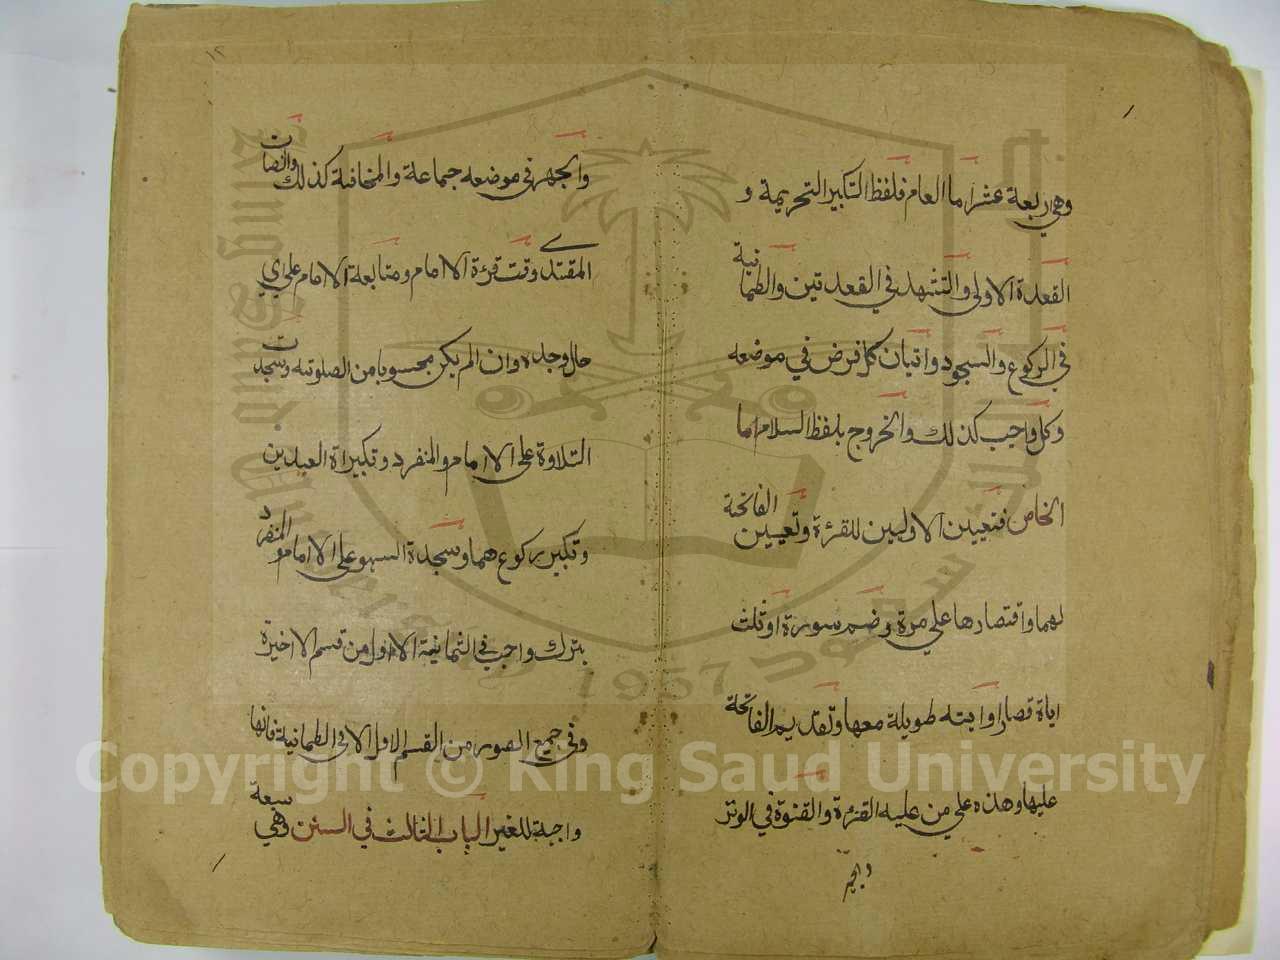 وهي ربعة عشر اما العام فلفظ التكبير التحريمة و
القعدة الاولى والتشهد في القعدتين والطمانية
في الركوع والسجود واتيان كل فرض في موضعه
وكل واجب كذلك والخروج بلفظ السلام اما
الخاص فتعيين الاوليين للقرءة وتعيين الفاتحة
لهما واقتصارها علي مرة وضم سورة او ثلث
اياة قصار او ايته طويلة معها وتقديم الفاتحة
عليها وهذه علي من عليه القرءة والقنوة في الوتر
والجهر
١٢
والجهر في موضعه جماعة والمخافتة كذلك وانصات
المقتدے وقت قرءة الامام ومتابعة الامام علي اي
حال وجده وان لم يكن محسوبا من الصلوته وسجدت
التلاوة علي الامام والمنفرد وتكبيراة العيدين
وتكبير ركوعهما وسجدة السهو علي الامام والمنفرد
بترك واجب في الثمانية الاول من قسم الاخيرة
وفي جميع الصور من القسم الاول الا في الطمانية فانها
واجبة للغير الباب الثالث في السنن وهي سبعة
Copyright © King Saud University
King Saud University
1957